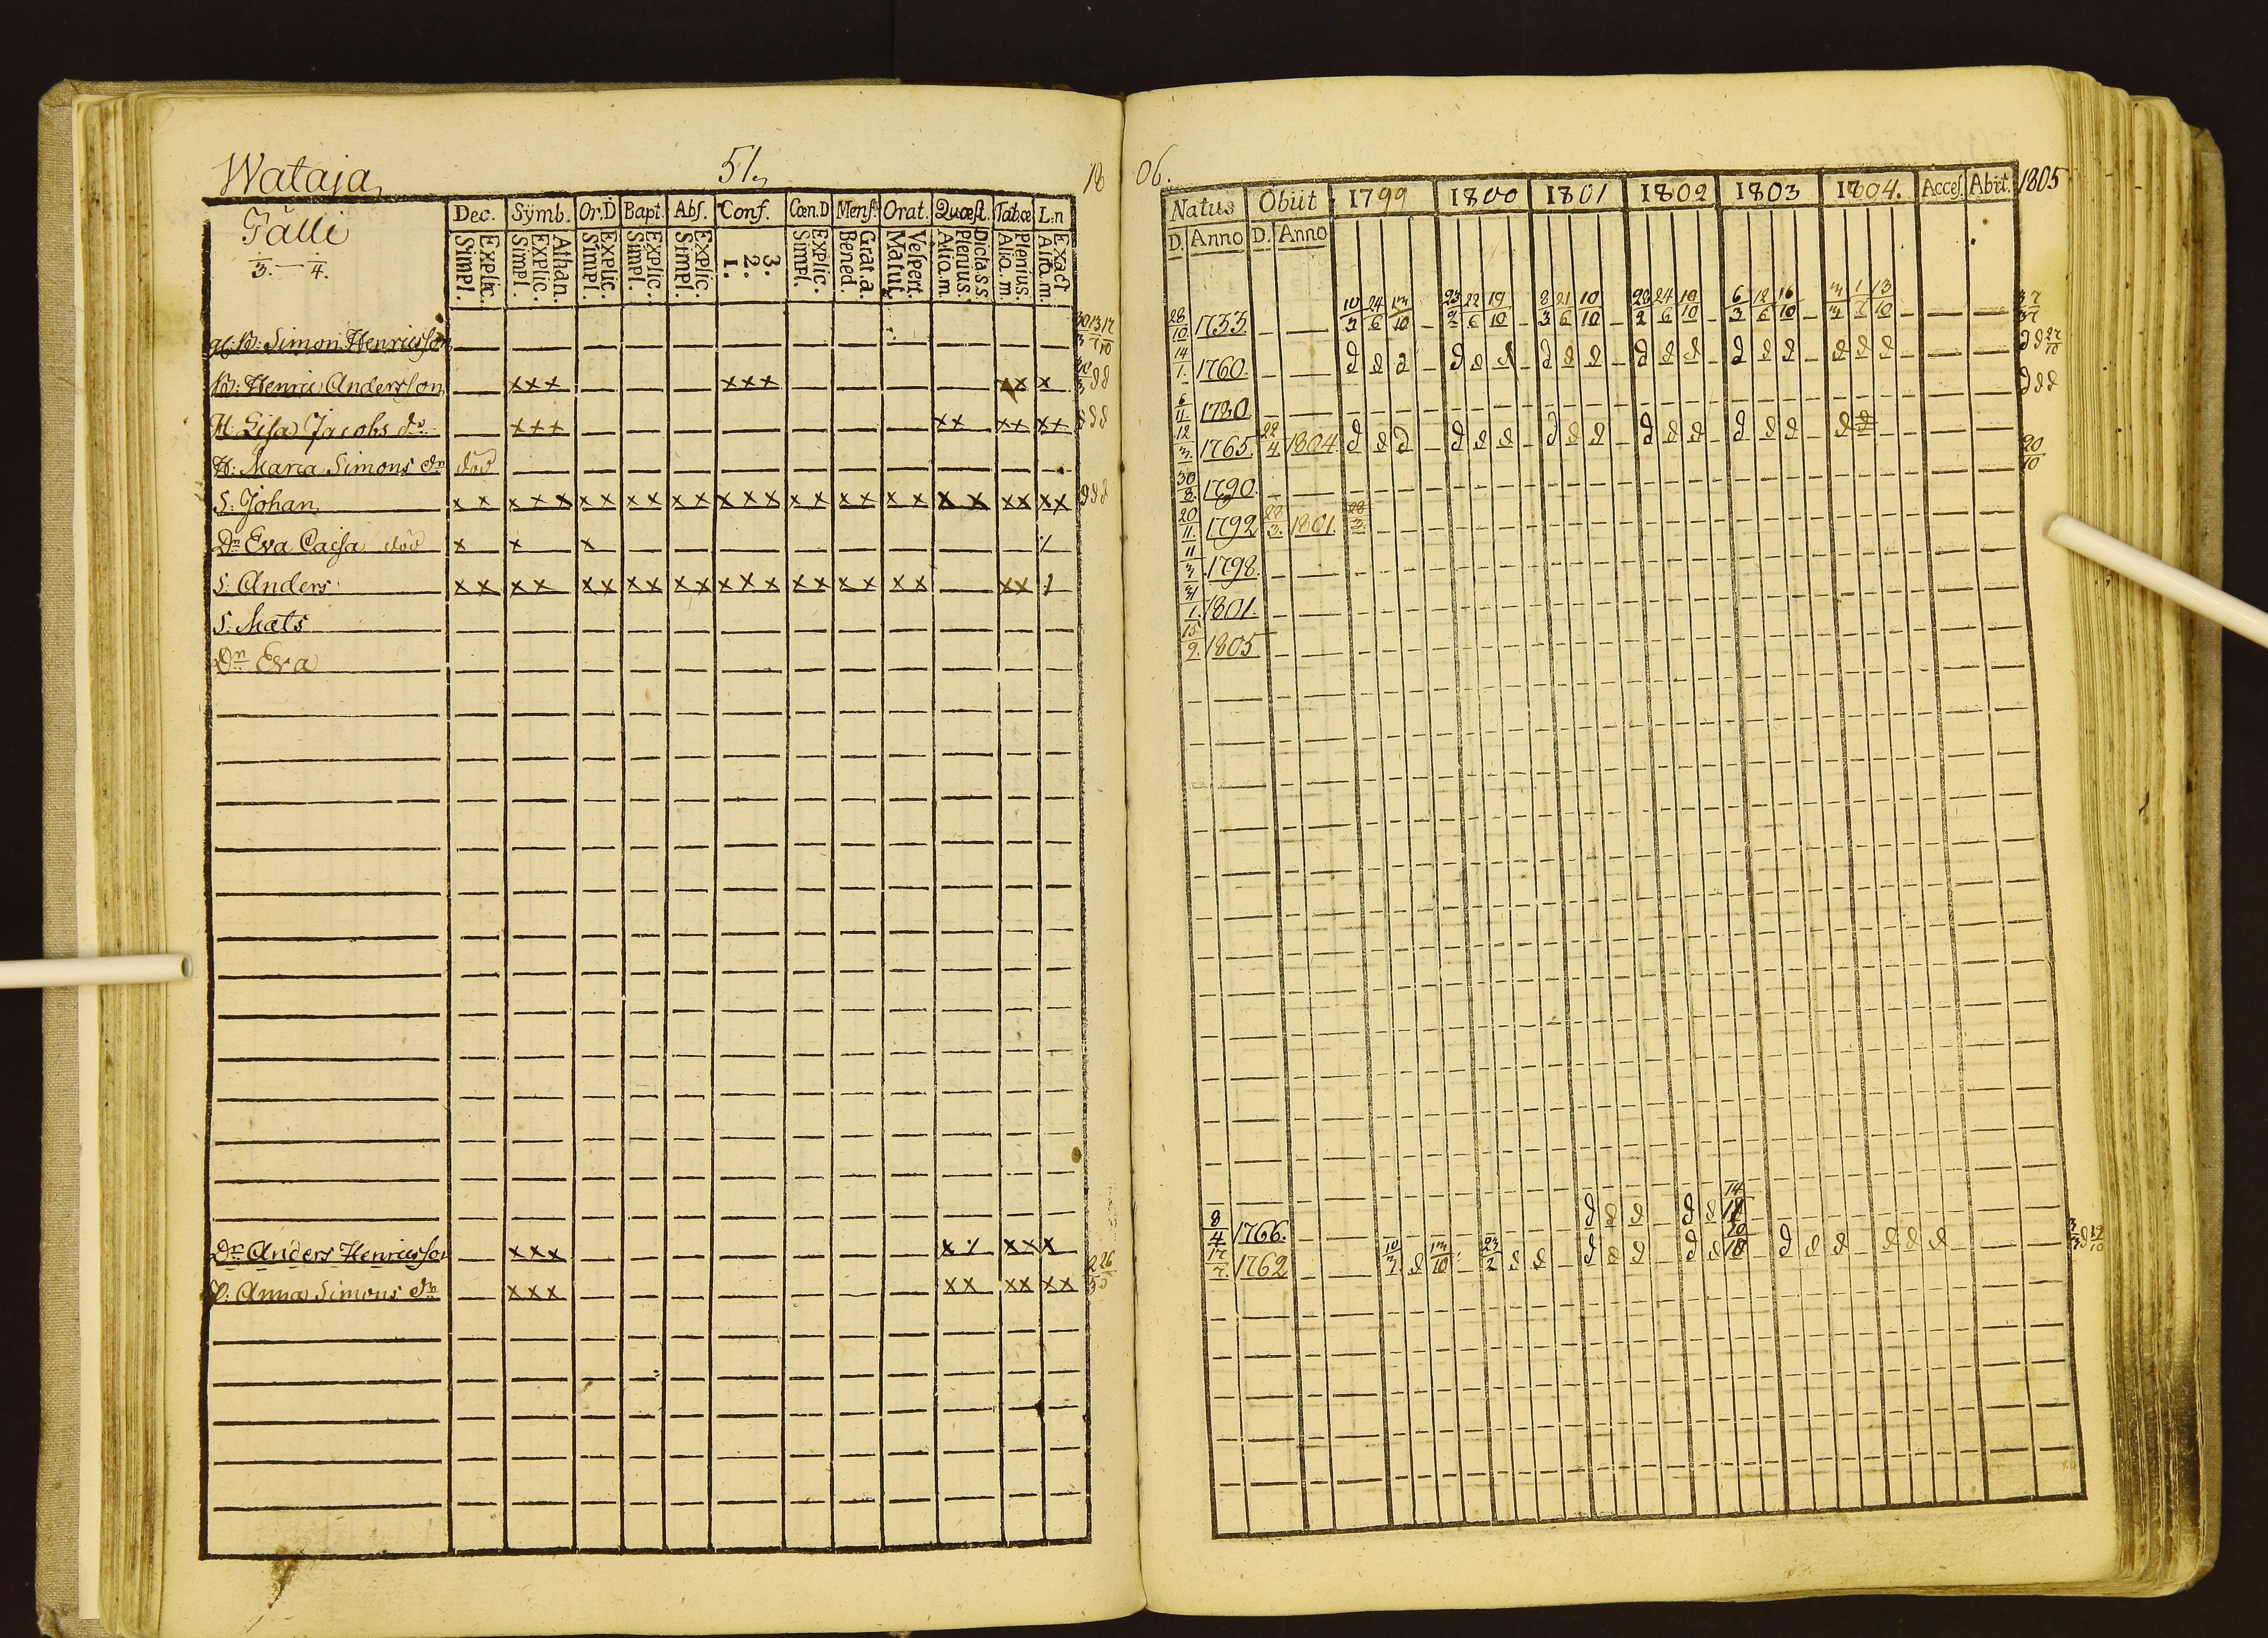 Wataja
51.
18
Tälli
3. — 4.
Dec. Symb. Or.D Bapt. Abs. Conf. Cœn.D Mens. Orat. Quœst. Tab.œ L:n
Explic. Simpl. Athan. Explic. Simpl. Explic. Simpl. Explic. Simpl. Explic. Simpl. 3. 2. 1. Explic. Simpl. Grat.a. Bened. Vespert. Matut. Dicta s.s. Plenius. Aliq.m. Plenius. Aliq.m. Exact. Aliq.m.
B: Simon Henricsson
B: Henric Andersson x x x x x x x x x
H: Lisa Jacobs dr x x x x x x x x x
H: Maria Simons dr död
S: Johan x x x x x x x x x x x x x x x x x x x x x x x x x x
Dr Eva Caisa död x x x
S: Anders x x x x x x x x x x x x x x x x x x x x x x
S: Mats
Dr Eva
Dr Anders Henricsson x x x x x x x
H: Anna Simons dr x x x x x x x x x
06.
Natus Obiit 1799 1800 1801 1802 1803 1804. Acces. Abit. 1805
D. Anno D. Anno
28/10 1733. 10/3 24/6 13/10 23/2 22/6 19/10 8/3 21/6 10/10 28/2 24/6 10/10 6/3 12/6 16/10
14/1. 1760. d d d d d d d d d d d d d d d d d d
6/11. 1780.
12/3. 1765. 22/4 1804 d d d d d d d d d d d d d d d
30/8. 1790.
20/11. 1792 28/3. 1801. 28/3.
11/3 1798.
31/1. 1801.
15/9. 1805
8/4 1766. d d d d d 14/18
17/7. 1762 10/3 d 13/10 23/2 d d d d d d d d d d d d d